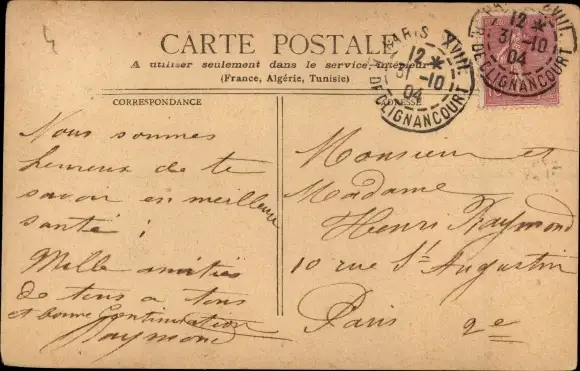 4
CARTE POSTALE
A utiliser seulement dans le service intérieur
(France, Algérie, Tunisie)
PARIS XVIII
12 *
31 -10
04
R. DE CLIGNANCOURT
PARIS XVIII
12 *
31 -10
04
R. DE CLIGNANCOURT
CORRESPONDANCE
Nous sommes
heureux de te
savoir en meilleure
santé ;
Mille amitiés
de tous a tous
et bonne continuation
Raymond
ADRESSE
Monsieur et
Madame
Henri Raymond
10 rue St Augustin
Paris 2e